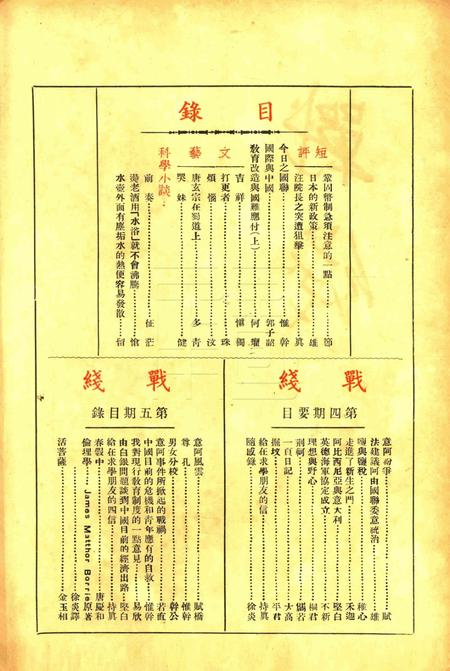 目錄
短評
鞏固幣制急須注意的一點……節
日本的新政策……雄
汪院長之突遭狙擊……眞
今日之國聯……惟幹
國際與中國……郭子韶
敎育改造與國難應付(上)……何
文藝
吉祥……懷獨
打更者……珠
煩惱……汶
唐玄宗在蜀道上……多青
哭妹……健
前奏……征茫
科學小談…
燙老酒用「水浴」就不會沸騰……愴
水壺外面有塵垢水的熱便容易發散……留
戰綫
第四期要目
意阿紛爭……賦
法建議阿由國聯委意統治……雄
鹽與鹽稅……稚心
走進了新生之門……禾迦
阿比西尼亞與意大利……堅白
英德海軍協定成立……不新
理想與野心……桐君
荆軻……鷗若
一百日記……大高
掘坟……平君
給在求學朋友的信……持眞
隨感錄……徐炎
戰綫
第五期目錄
意阿風雲……賦橋
尊孔……惟幹
男女分校……幹公
意阿事件所掀起的戰禍……若直
中國目前的危機和青年應有的自救……惟幹
我對現行敎育制度的一點意見……易欣
由白銀問題談到中國目前的經濟出路……堅白
給在求學朋友的四信……持眞
春假中……唐慶和
倫理學……James Matthor Borrie原著
徐炎譯
活菩薩……金玉相